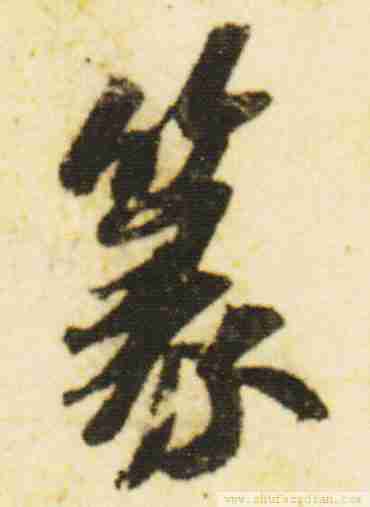 篆
www.shufazidian.com